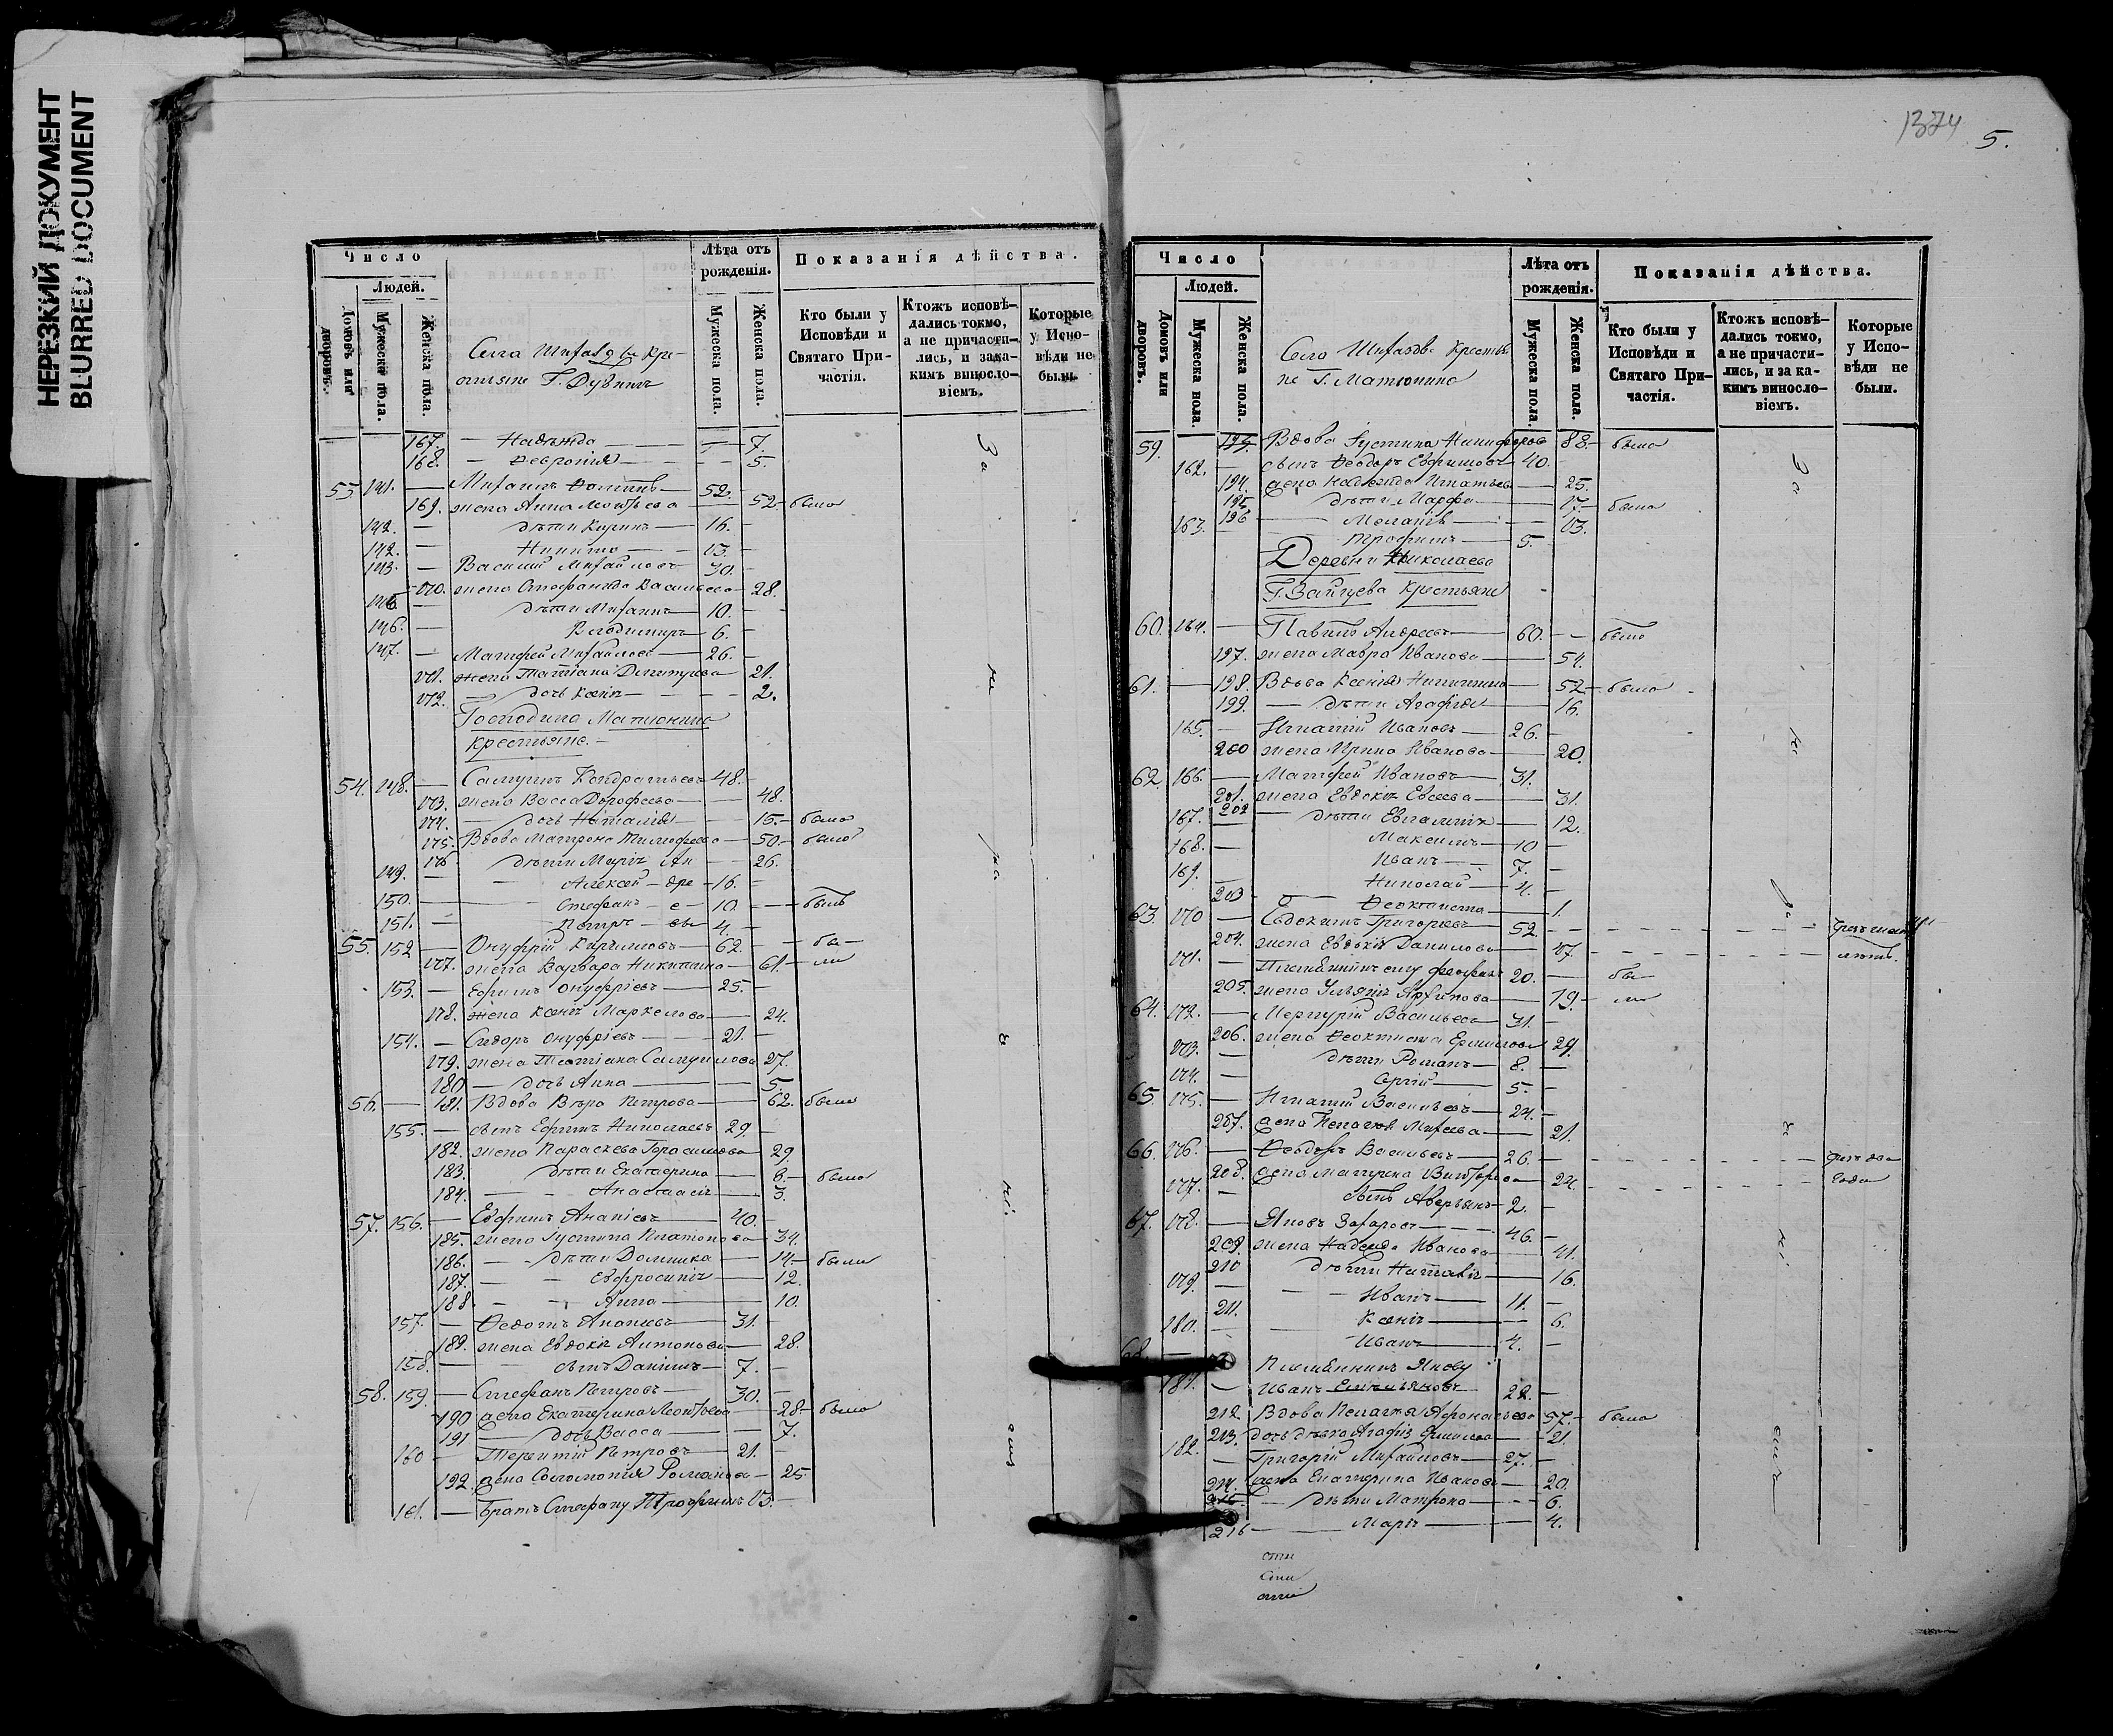 НЕРЕЗКИЙ ДОКУМЕНТ
BLURRED DOCUMENT
Число
Людей.
Домовъ или дворовъ.
Мужеска пола.
Женска пола.
Лѣта отъ рожденія.
Мужеска пола.
Женска пола.
Показанія дѣйства.
Кто были у Исповѣди и Святаго Причастія.
Ктожъ исповѣдались токмо, а не причастились, и закакимъ винословіемъ.
Которые у Исповѣди не были.
167. — Надежда — 7.
168. — Феврония — 5.
141. — Михаилъ — 52.
169. жена Анна Леонтьева — 52 — была
142. — дѣти Кирилъ — 16.
142. — Никита — 13.
143. — Василий Михайловъ — 30.
170. жена Стефанида Васильева — 28.
дѣти Михаилъ — 10.
146. — Владимиръ — 6.
147. — Матфей Михайловъ — 26.
171. жена Татіана Димитриева 21.
172. — дочь Ксенія — 2.
Господина Матюнина
крестьяне.
54. 148. — Самуилъ Кондратьевъ — 48.
173. жена Васса Дорофеева — 48.
174. — дочь Наталия — 15. — была
175. Вдова Матрона Тимофеева — 50. — была
176. дѣти Марія Ан — 26.
149. — Алексѣй — дре — 16.
150. — Стефанъ — е — 10. — былъ
151. — Петръ — вы 4.
55. 152 — Онуфрій Кириловъ — 62. — бы—
177. жена Варвара Никитина — 61. — ли
153. — Ефимъ Онуфріевъ — 25.
178. жена Ксенія Маркелова — 24.
154. — Сидоръ Онуфріевъ — 21.
179. жена Татіана Самуилова 27.
180 — дочь Анна — 5.
56. — 181. Вдова Вѣра Петрова — 62. была
155. — сынъ Ефимъ Николаевъ 29.
182. жена Параскева Герасимова 29.
183. дѣти Екатерина — 6. — была
184. — Анастасія — 3.
57. 156. — Евфимъ Ананіевъ — 40.
185. жена Іустина Платонова — 34.
186. — дѣти Домника — 14. — были
187. — Евфросинія — 12.
188. — Анна — 10.
157. — Федотъ Ананьевъ — 31.
189. жена Евдокія Антонова — 28.
158. — сынъ Даніилъ — 7.
58. 159. — Стефанъ Петровъ — 30.
190 жена Екатерина Леонтьева — 28. — была
191 — дочь Васса — 7.
160 — Терентій Петровъ — 21.
192. жена Соломонія Романова — 25.
161. — Братъ Стефану Трофимъ 13.
1374
5.
Число
Людей.
Домовъ или дворовъ.
Мужеска пола.
Женска пола.
Лѣта отъ рожденія.
Мужеска пола.
Женска пола.
Показанія дѣйства.
Кто были у Исповѣди и Святаго Причастія.
Ктожъ исповѣдались токмо, а не причастились, и за какимъ винословіемъ.
Которые у Исповѣди не были.
59. 193. Вдова Іустина Никифорова 88. — была
162. — сынъ Феодоръ Евфимовъ — 40.
194. жена Надежда Игнатьева — 25.
195. дѣти Марфа — 17. — была
196 — 13.
163. — Трофимъ — 5.
Деревни Николаева
Г. Зайцева крестьяне
60. 164. — Андреевъ — 60. — было
197. жена Мавра Иванова — 54.
61. — 198. Вдова Ксенія Никитина — 52 — была
199. — дѣти Агафія — 16.
165. — Игнатій Ивановъ — 26.
200 жена Ирина Иванова — 20.
62. 166. — Матфей Ивановъ — 31.
201. жена Евдокія Евсеева — 31.
202 — дѣти — 12.
167. — Максимъ — 10
168. — Иванъ — 7.
169. — Николай — 4.
203 — Феоктиста — 1.
63. 170 — Евдокимъ Григорьевъ — 52.
204. жена Евдокія Данилова — 47.
171. — 20. — бы—
205. жена Ульянія Архипова — 19 — ли
64. 172. — Меркурій Васильевъ — 31.
206. жена Феоктиста Ермилова 29.
173. — дѣти Романъ — 8.
174. — Сергій — 5.
65. 175. — Игнатій Васильевъ — 24.
207. жена Пелагія Михеева — 21.
66. 176. — Феодоръ Васильевъ — 26.
208. жена — 24. года
177. — сынъ Аверьянъ — 2.
67. 178. — Яковъ Захаровъ — 46.
209. жена Надежда Иванова — 41.
210 дѣти Наталія — 16.
179. — Иванъ — 11.
211. Ксенія — 6.
180. — Иванъ — 4.
68. Племянникъ Якову
181. — Иванъ Емельяновъ — 22.
212. Вдова Пелагія Афонасьева 57. — была
213. — 21.
182. — Григорій Михайловъ — 27.
214. жена Екатерина Иванова — 20.
215. — дѣти Матрона — 6.
216 — Марія — 4.